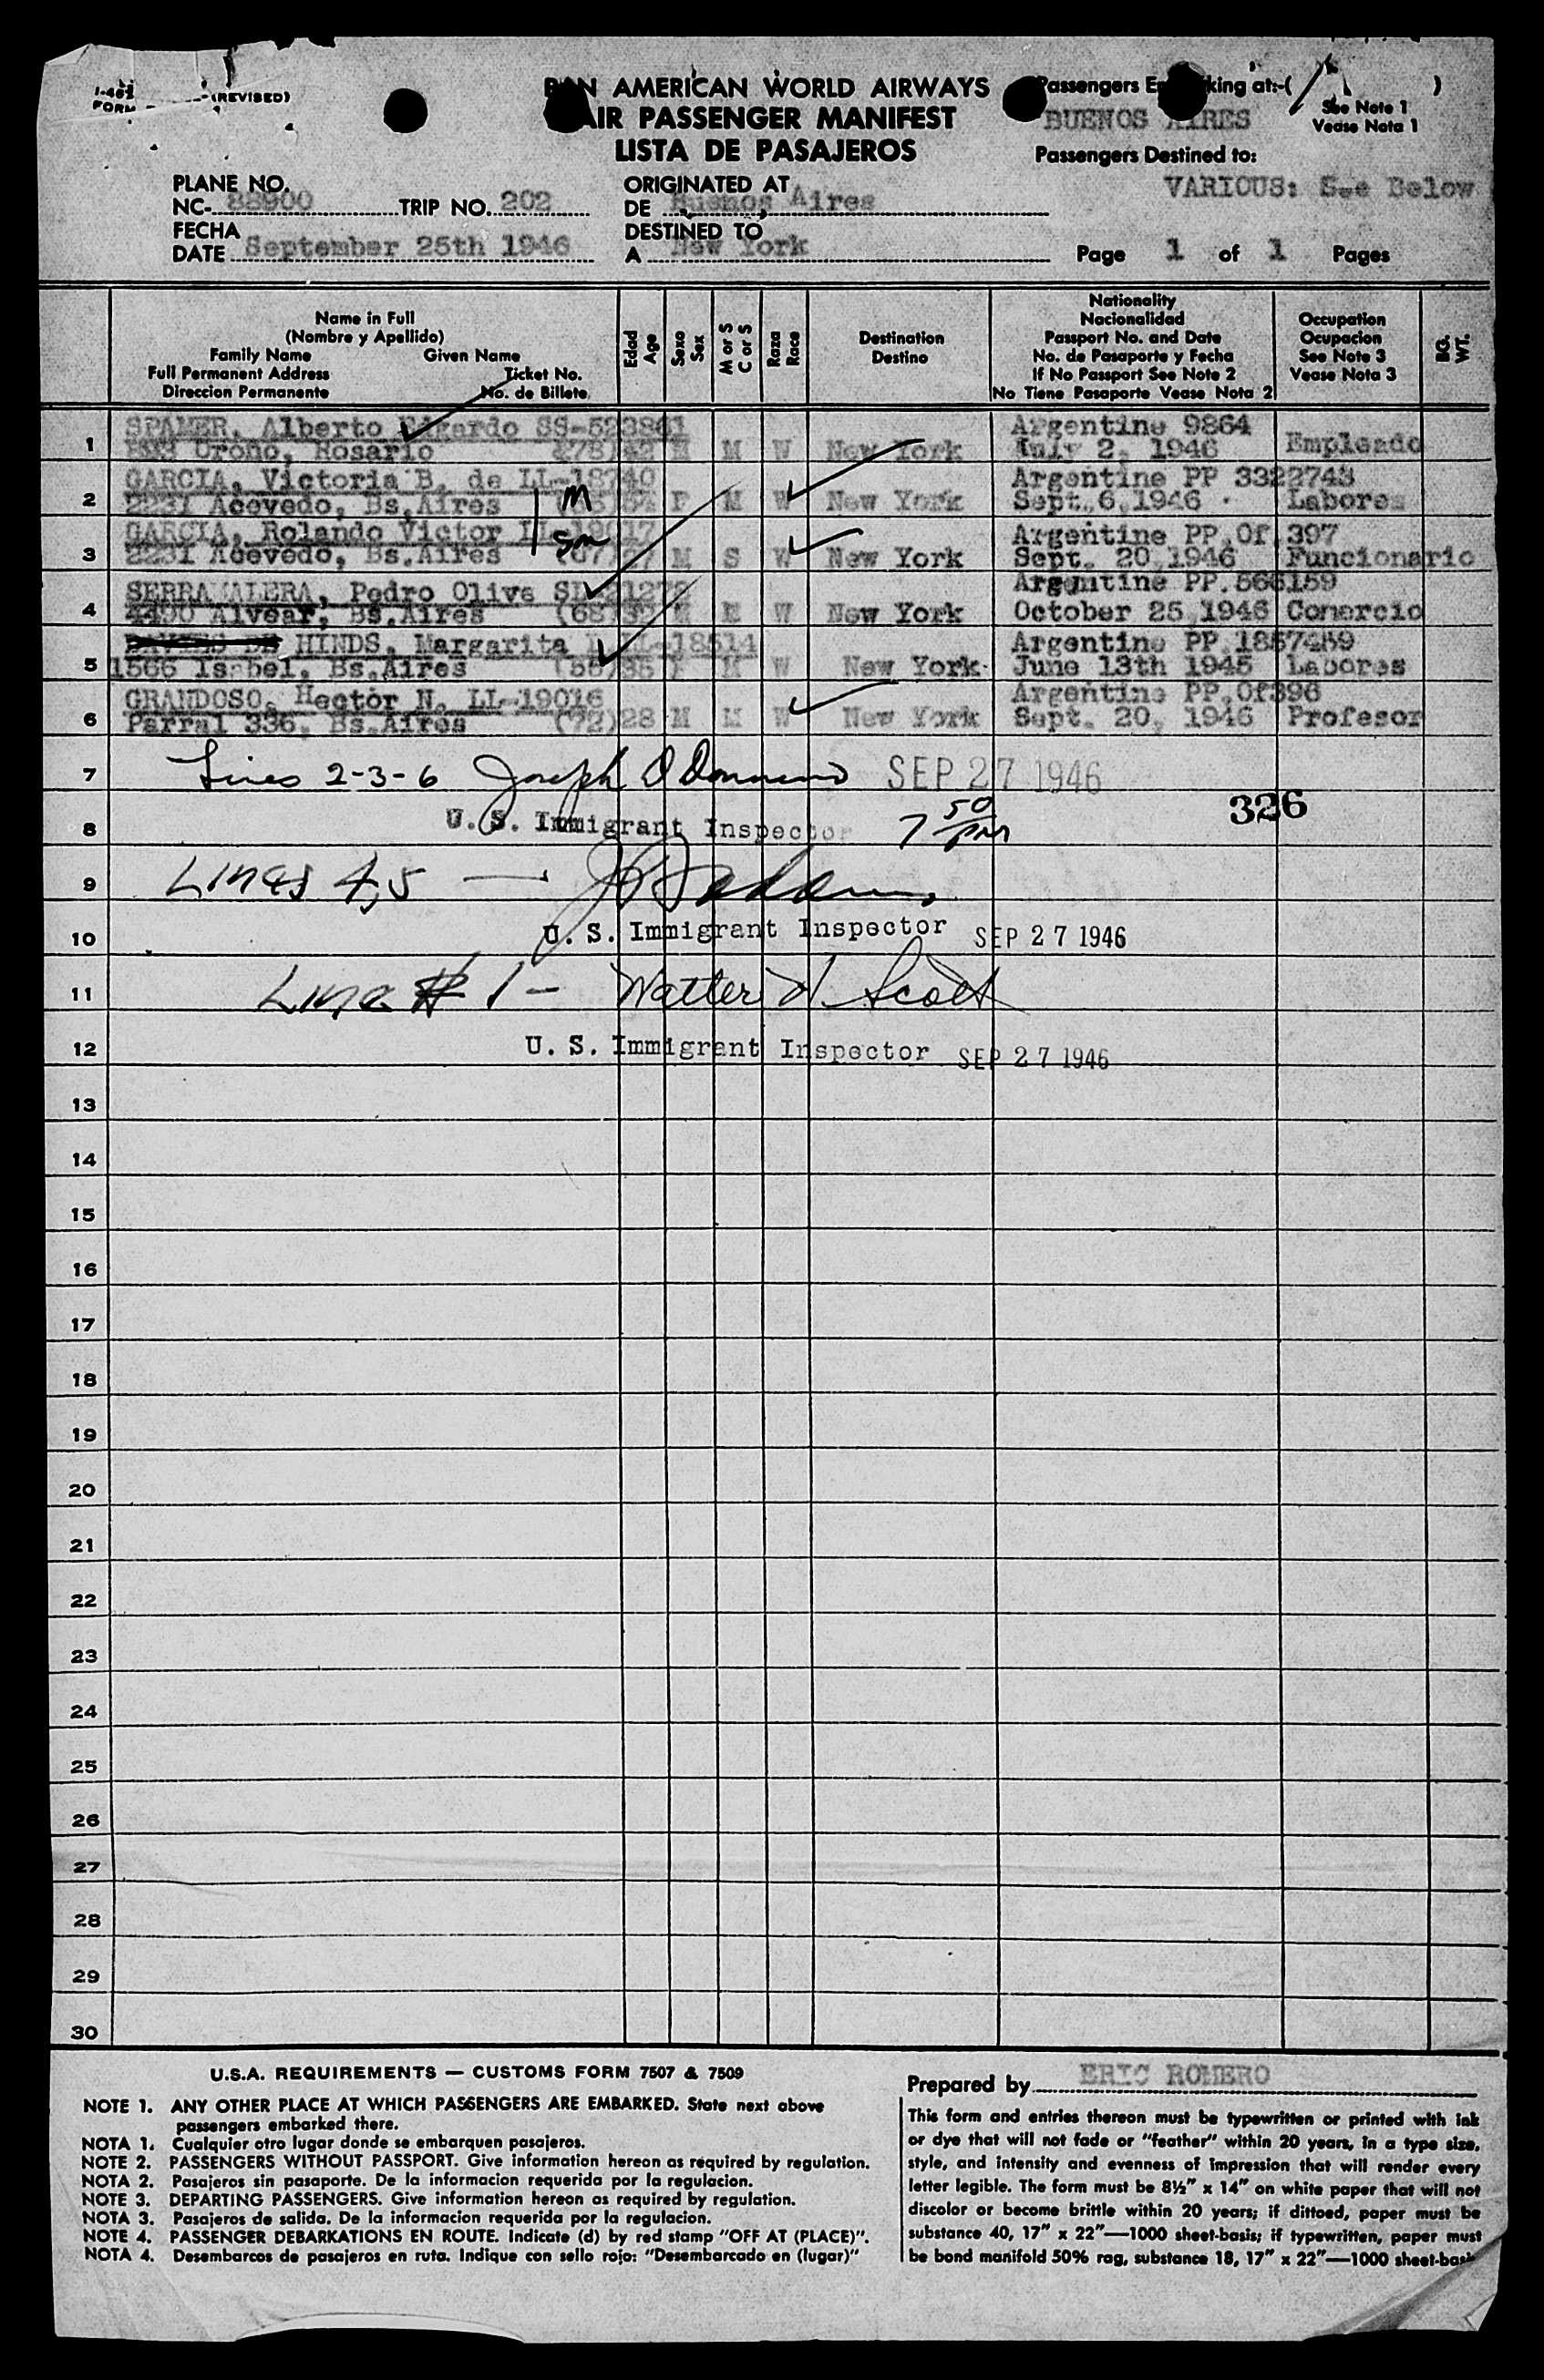 I-466
FORM (REVISED)
PAN AMERICAN WORLD AIRWAYS
AIR PASSENGER MANIFEST
LISTA DE PASAJEROS
Passengers Embarking at:-( )
See Note 1
Vease Nota 1
BUENOS AIRES
Passengers Destined to:
VARIOUS: See Below
PLANE NO.
NC- 88900 TRIP NO. 202
FECHA
DATE September 25th 1946
ORIGINATED AT
DE Buenos Aires
DESTINED TO
A New York
Page 1 of 1 Pages
Name in Full
(Nombre y Apellido)
Family Name Given Name
Full Permanent Address Ticket No.
Direccion Permanente No. de Billete
Edad Age
Sexo Sex
M or S C or S
Raza Race
Destination
Destino
Nationality
Nacionalidad
Passport No. and Date
No. de Pasaporte y Fecha
If No Passport See Note 2
No Tiene Pasaporte Vease Nota 2
Occupation
Ocupacion
See Note 3
Vease Nota 3
BG. WT.
SPAMER, Alberto Edgardo SS-523861 Argentine 9864
1 Oroño, Rosario (78) 42 M M W New York July 2, 1946 Empleado
GARCIA, Victoria B. de LL-18740 Argentine PP 3322743
2 2231 Acevedo, Bs.Aires M F M W New York Sept. 6, 1946 Labores
GARCIA, Rolando Victor LL-19017 Argentine PP.Of.397
3 2231 Acevedo, Bs.Aires (67) 27 M S W New York Sept. 20,1946 Funcionario
Pedro Oliva Argentine PP.566159
4 4490 Alvear, Bs.Aires (68) M W New York October 25,1946 Comercio
HINDS, Margarita LL-18514 Argentine PP 1857459
5 1566 Isabel, Bs.Aires 35 F M W New York June 13th 1945 Labores
GRANDOSO, Hector N. LL-19016 Argentine PP.Of396
6 Parral 336, Bs.Aires (72) 28 M M W New York Sept. 20, 1946 Profesor
7 Lines 2-3-6 Joseph SEP 27 1946
326
8 U. S. Immigrant Inspector 7 50 PM
9 Lines 4,5 —
10 U. S. Immigrant Inspector SEP 27 1946
11 Line # 1 - Walter H Scott
12 U. S. Immigrant Inspector SEP 27 1946
13
14
15
16
17
18
19
20
21
22
23
24
25
26
27
28
29
30
U.S.A. REQUIREMENTS — CUSTOMS FORM 7507 & 7509
NOTE 1. ANY OTHER PLACE AT WHICH PASSENGERS ARE EMBARKED. State next above
passengers embarked there.
NOTA 1. Cualquier otro lugar donde se embarquen pasajeros.
NOTE 2. PASSENGERS WITHOUT PASSPORT. Give information hereon as required by regulation.
NOTA 2. Pasajeros sin pasaporte. De la informacion requerida por la regulacion.
NOTE 3. DEPARTING PASSENGERS. Give information hereon as required by regulation.
NOTA 3. Pasajeros de salida. De la informacion requerida por la regulacion.
NOTE 4. PASSENGER DEBARKATIONS EN ROUTE. Indicate (d) by red stamp "OFF AT (PLACE)".
NOTA 4. Desembarcos de pasajeros en ruta. Indique con sello rojo: "Desembarcado en (lugar)"
Prepared by ERIC ROMERO
This form and entries thereon must be typewritten or printed with ink
or dye that will not fade or "feather" within 20 years, in a type size,
style, and intensity and evenness of impression that will render every
letter legible. The form must be 8½" x 14" on white paper that will not
discolor or become brittle within 20 years; if dittoed, paper must be
substance 40, 17" x 22"—1000 sheet-basis; if typewritten, paper must
be bond manifold 50% rag, substance 18, 17" x 22"—1000 sheet-basis